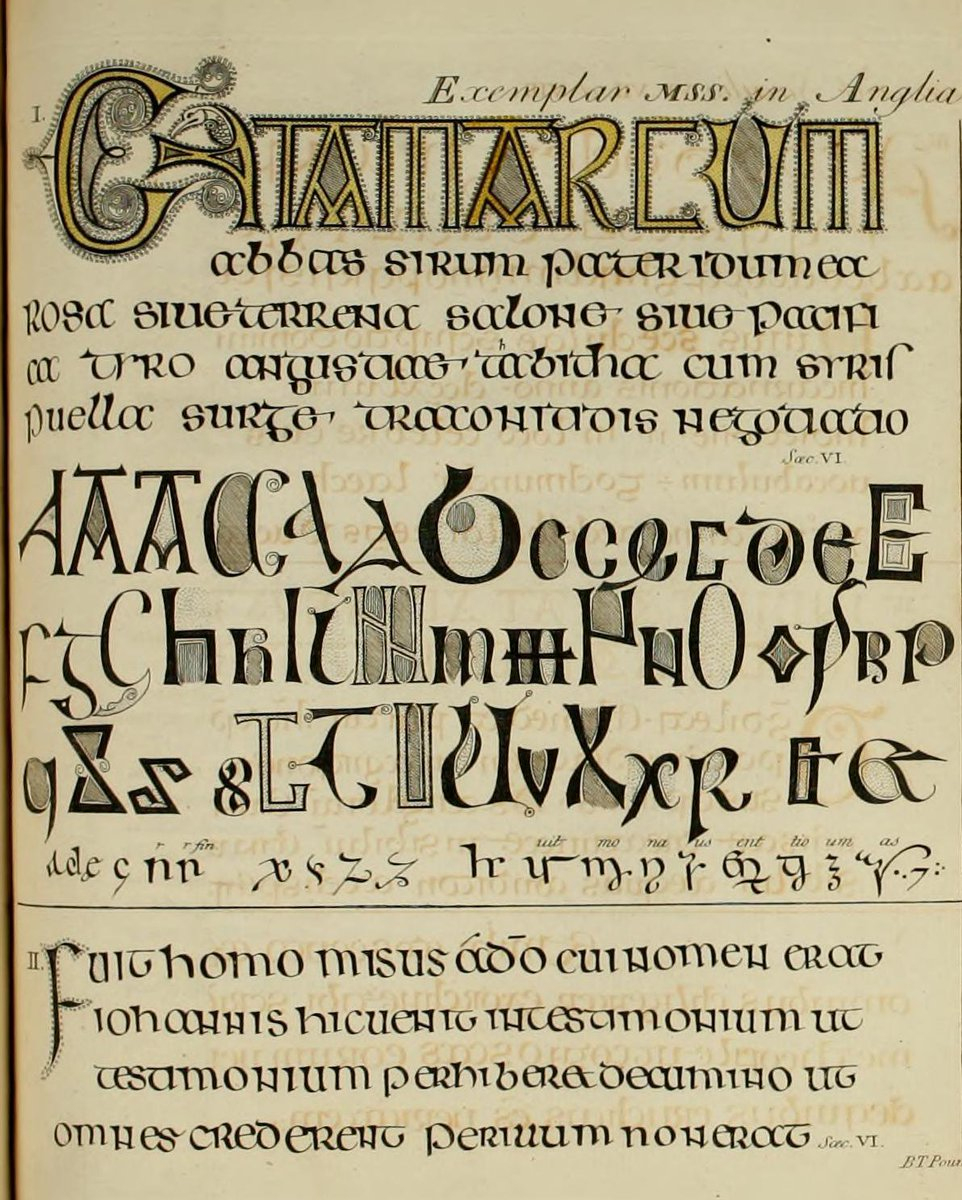 Exemplar MSS. in Anglia
I. CATAMARCUM
abbas sirum pater idumea
rosa siue terrena salone siue pacifi
ca tyro angustiae tabitha cum syris
puella surge traconitidis negotiatio
Sæc. VI
A A A A A A b c c c c d e E
r r fin uit mo na us ent tio um as
II. Fuit homo misus a dō cui nomen erat
iohannis hic uenit in testimonium ut
testimonium perhiberet de lumine ut
omnes crederent per illum non erat Sæc. VI.
BTPou